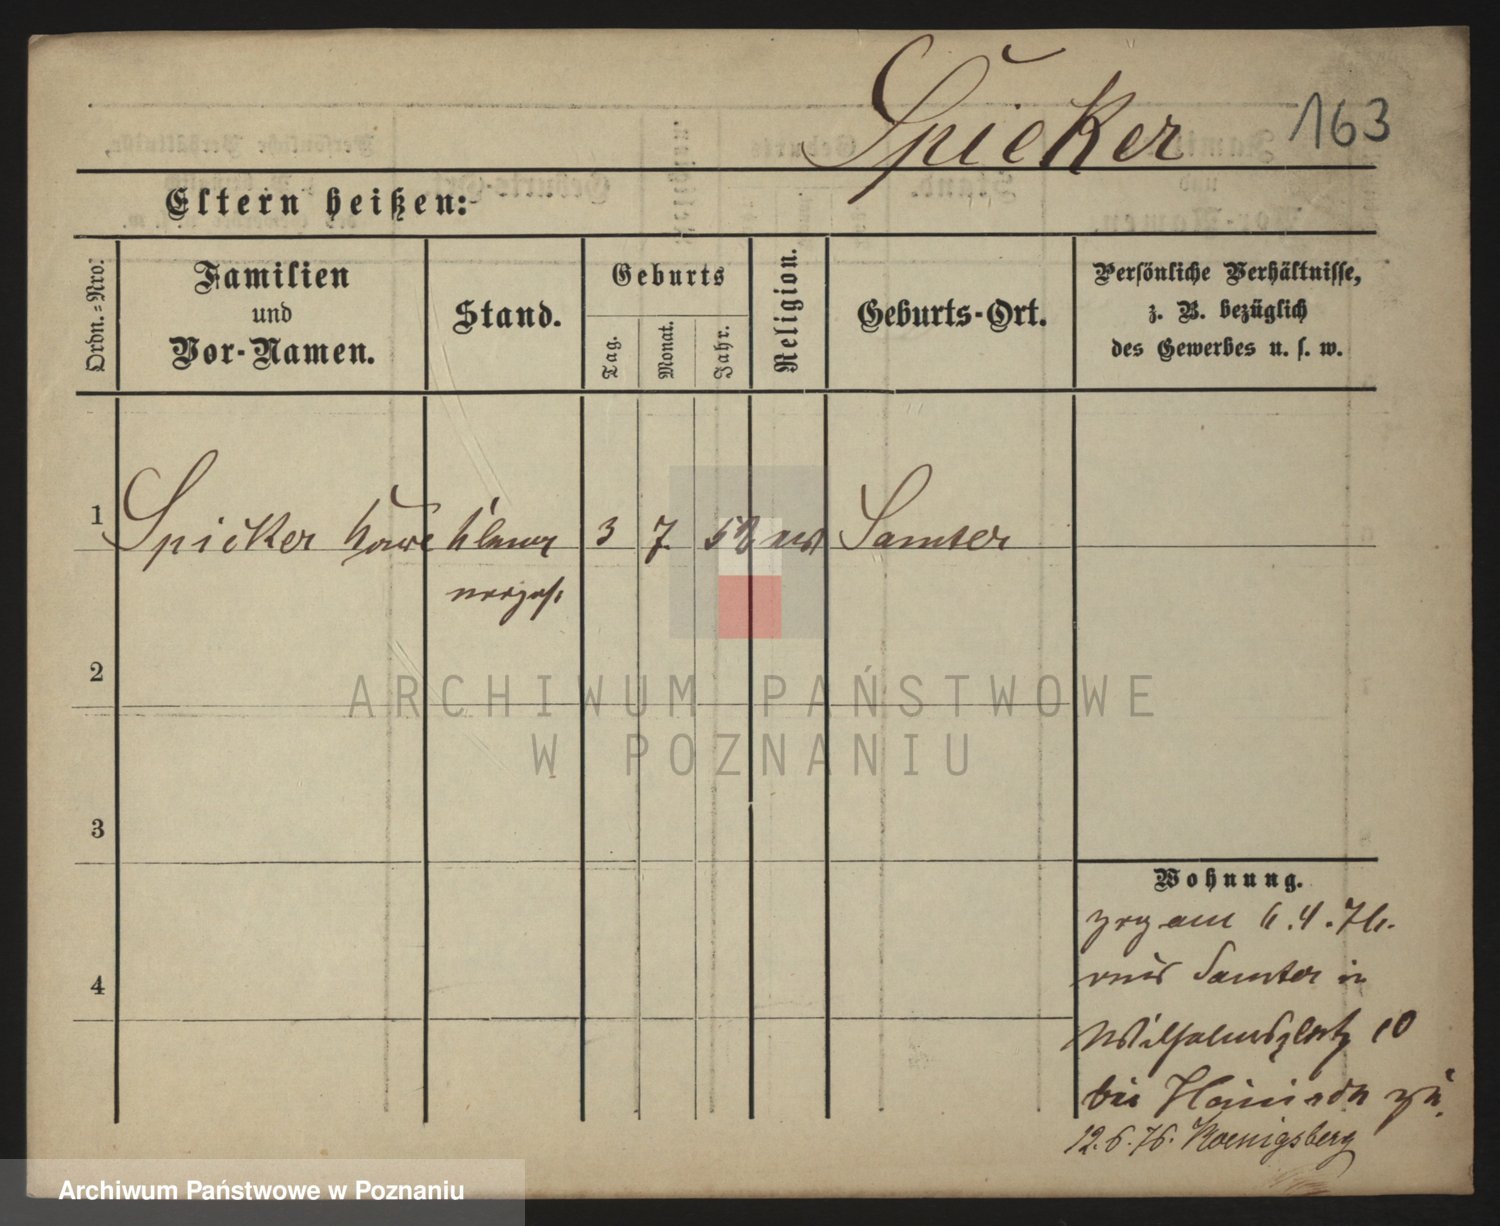 Spieker 163
Eltern heißen:
Ordn.-Nro.
Familien
und
Vor-Namen.
Stand.
Geburts
Tag.
Monat.
Jahr.
Religion.
Geburts-Ort.
Persönliche Verhältnisse,
z. B. bezüglich
des Gewerbes u. s. w.
1 Spieker 3 7. 58 Samter
2
3
4
ARCHIWUM PAŃSTWOWE
W POZNANIU
Wohnung.
zrg am 6.4.76.
aus Samter in
Wilhelmsplatz 10
bei zu.
12.6.76. Koenigsberg
Archiwum Państwowe w Poznaniu